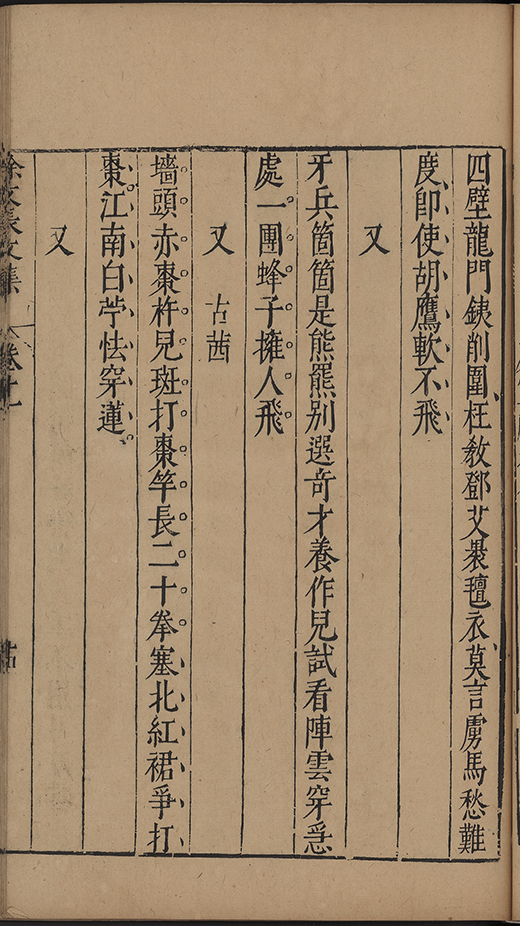 四壁龍門鋏削圍枉敎鄧艾裹氊衣莫言虜馬愁難
度卽使胡鷹軟不飛
又
牙兵箇箇是熊羆别選奇才養作兒試看陣雲穿急
處一團蜂子擁人飛
又 古茜
墻頭赤棗杵兒斑打棗竿長二十拳塞北紅裙爭打
棗江南白苧怯穿蓮
又
徐文長文集 卷十一